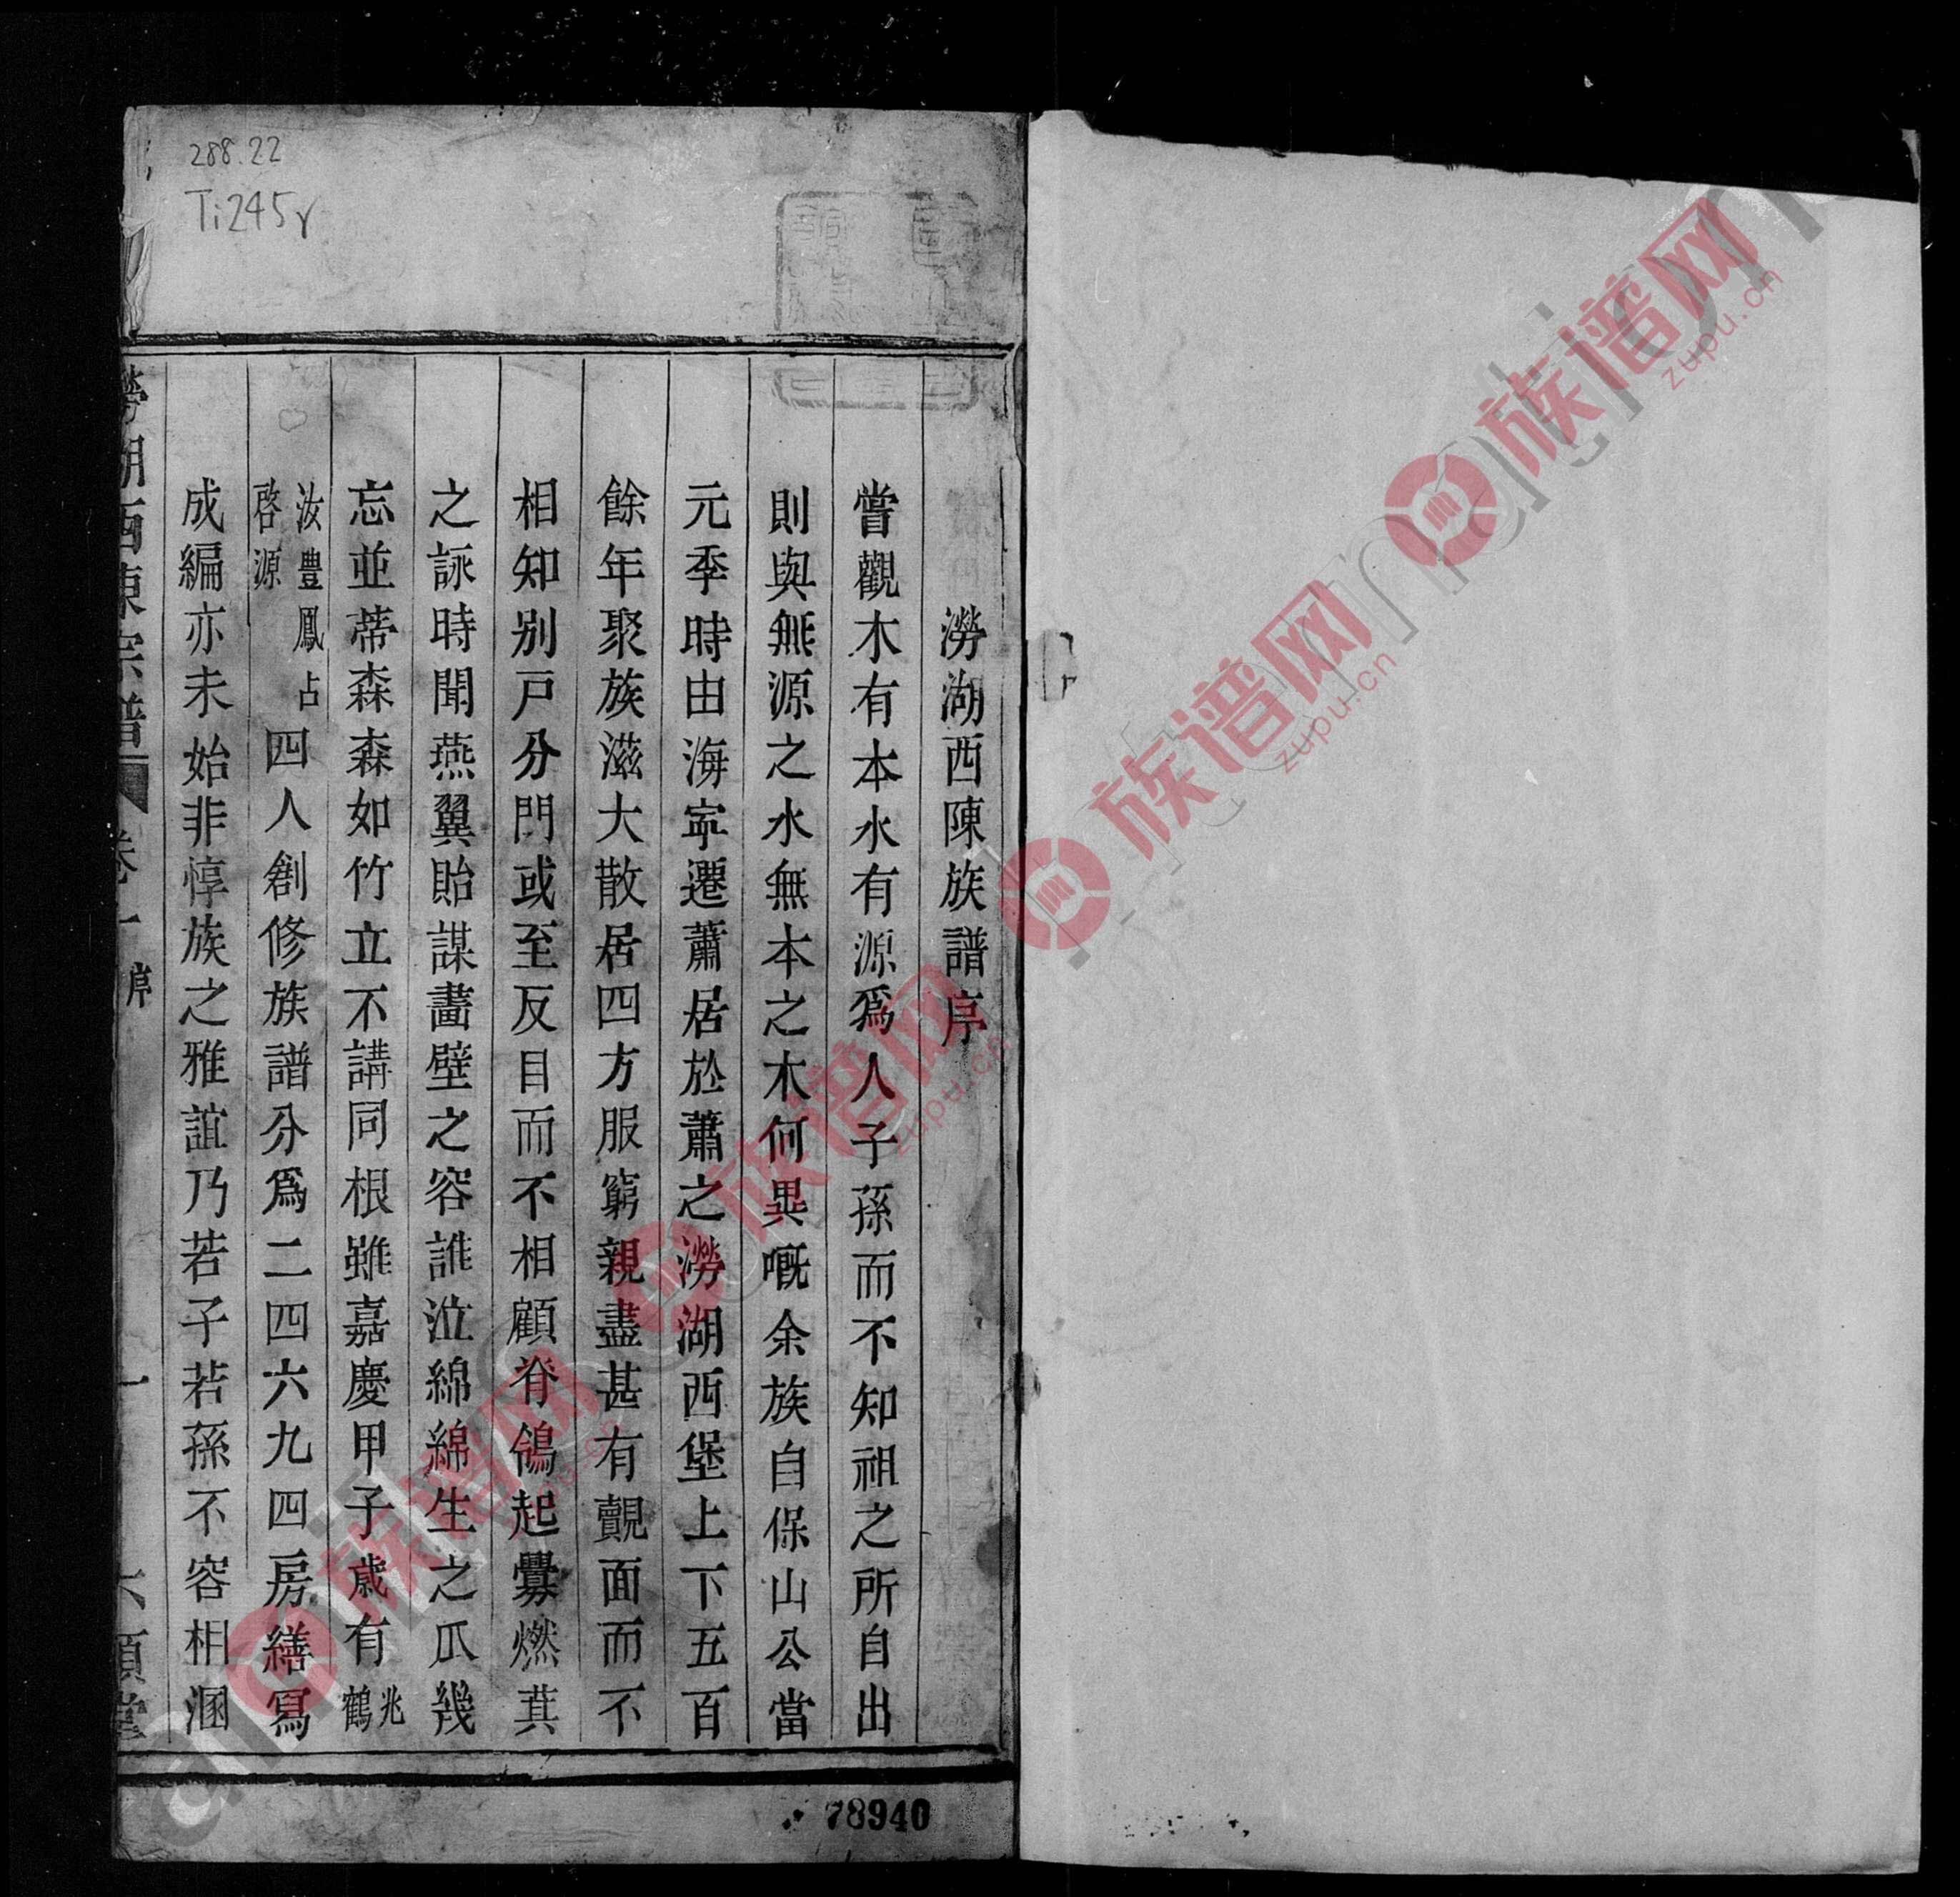 288.22
Ti245r
澇湖西陳族譜序
嘗觀木有本水有源爲人子孫而不知祖之所自出
則與無源之水無本之木何異嘅余族自保山公當
元季時由海寧遷蕭居於蕭之澇湖西堡上下五百
餘年聚族滋大散居四方服窮親盡甚有覿面而不
相知別戸分門或至反目而不相顧脊鴒起釁燃萁
之詠時聞燕翼貽謀畵壁之容誰泣綿綿生之瓜幾
忘並蒂森森如竹立不講同根雖嘉慶甲子歲有兆鶴
汝豐鳳占啓源四人創修族譜分爲二四六九四房繕寫
成編亦未始非惇族之雅誼乃若子若孫不容相溷
澇湖西陳宗譜 卷一 序 一
78940
族谱网
zupu.cn
族谱网
zupu.cn
族谱网
zupu.cn
族谱网